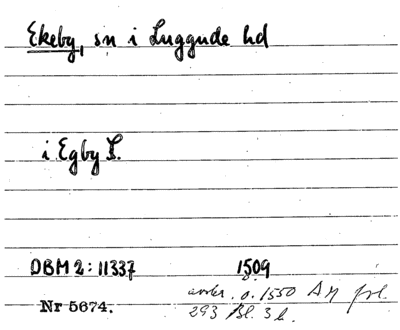 Ekeby, sn i Luggude hd
i Egby S.
DBM 2: 11337 1509
avskr. o. 1550 AM fol.
Nr 5674. 293 Bl. 3